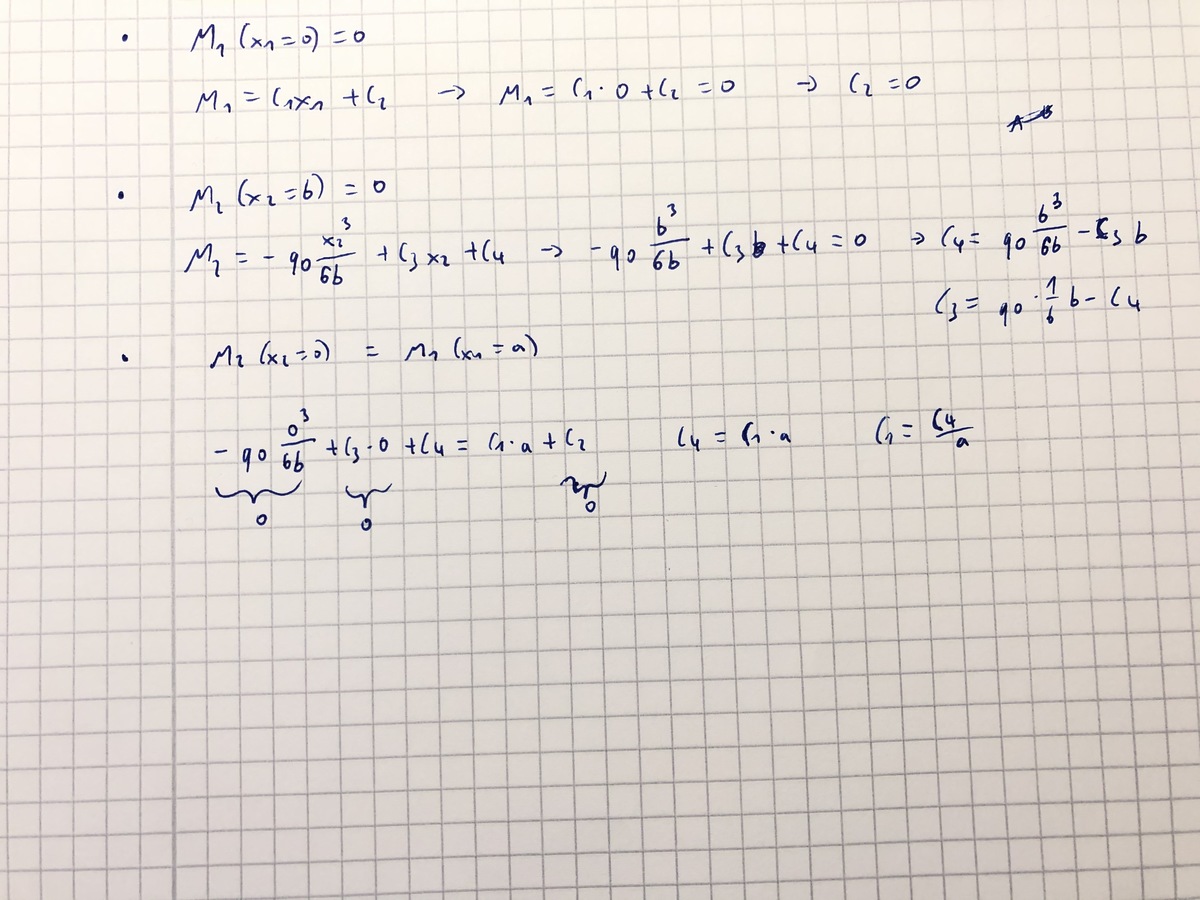 • M₁ (x₁=0) = 0
M₁ = C₁x₁ + C₂ → M₁ = C₁ · 0 + C₂ = 0 → C₂ = 0
• M₂ (x₂=b) = 0
M₂ = - q0 x₂³/6b + C₃ x₂ + C₄ → - q0 b³/6b + C₃ b + C₄ = 0 → C₄ = q0 b³/6b - C₃ b
C₃ = q0 · 1/6 b - C₄
• M₂ (x₂=0) = M₁ (x₁=a)
- q0 0³/6b + C₃ · 0 + C₄ = C₁ · a + C₂ C₄ = C₁ · a C₁ = C₄/a
0 0 0